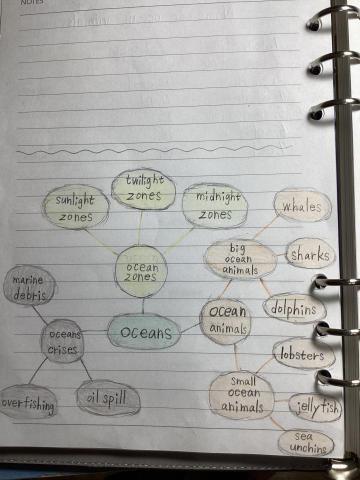 NOTES
sunlight
zones
twilight
zones
midnight
zones
whales
ocean
zones
big
ocean
animals
sharks
marine
debris
dolphins
oceans
crises
oceans
ocean
animals
lobsters
overfishing
oil spill
small
ocean
animals
jellyfish
sea
unchins